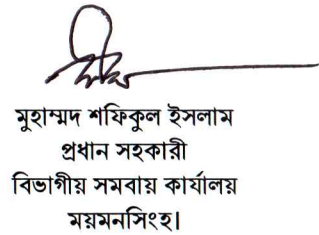 মুহাম্মদ শফিকুল ইসলাম
প্রধান সহকারী
বিভাগীয় সমবায় কার্যালয়
ময়মনসিংহ।